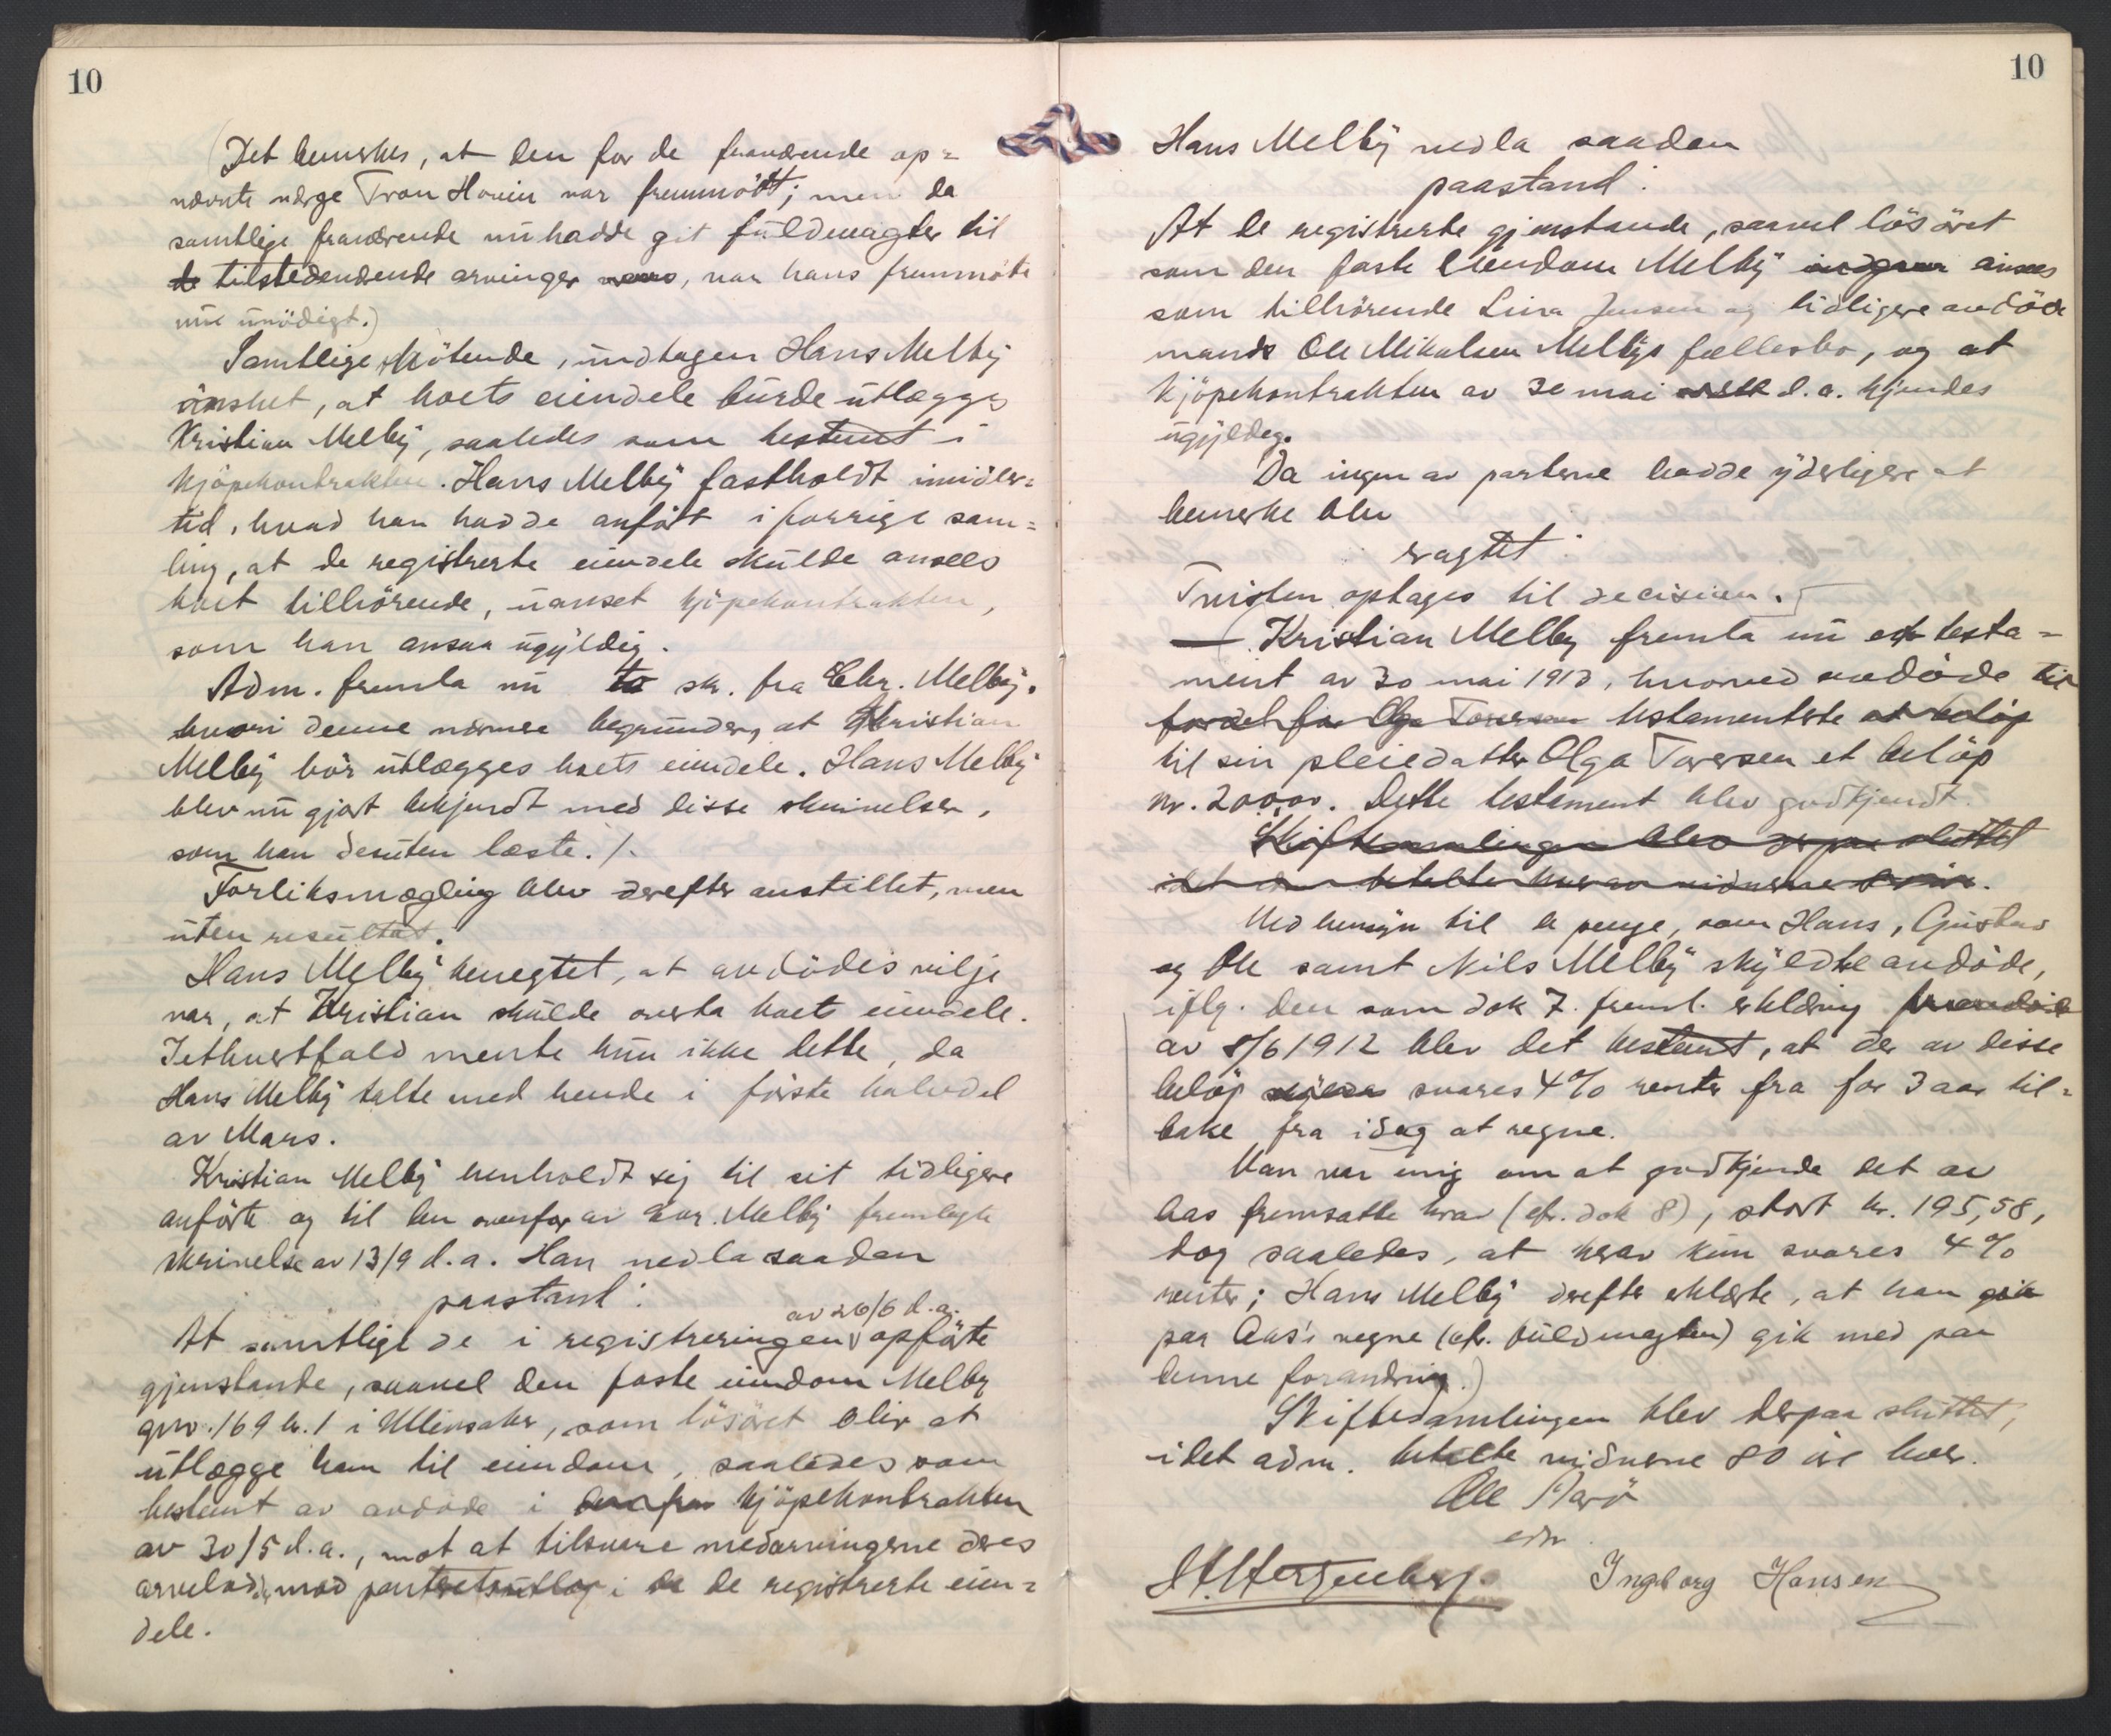 10
(Det bemerkes, at den for de fraværende op=
nævnte værge Tron Hovin var fremmøtt; men da
samtlige fraværende nu hadde git fuldmagter til
de tilstedeværende arvinger, var hans fremmøte
nu unødigt.)
Samtlige møtende, undtagen Hans Melby
ønsket, at boets eiendele burde utlægges
Kristian Melby, saaledes som bestemt i
kjøpekontrakten. Hans Melby fastholdt imidler=
tid, hvad han hadde anført i forrige sam=
ling, at de registrerte eiendele skulde ansees
boet tilhørende, uanset kjøpekontrakten,
som han ansaa ugyldig.
Adm. fremla nu to skr. fra Chr. Melby,
hvori denne nærmere begrunder, at Kristian
Melby bør utlægges boets eiendele. Hans Melby
blev nu gjort bekjendt med disse skrivelser,
som han desuten læste. /.
Forliksmægling blev derefter anstillet, men
uten resultat.
Hans Melby benegtet, at avdødes vilje
var, at Kristian skulde overta boets eiendele.
Iethvertfald mente hun ikke dette, da
Hans Melby talte med hende i første halvdel
av Mars.
Kristian Melby henholdt sig til sit tidligere
anførte og til den ovenfor av Chr. Melby fremlagte
skrivelse av 13/9 d.a. Han nedla saadan
paastand:
av 26/6 d.a.
At samtlige de i registreringen opførte
gjenstande, saavel den faste eiendom Melby
gnr. 169 br. 1 i Ullensaker, som løsøret blir at
utlægge ham til eiendom, saaledes som
bestemt av avdøde i kjøpekontrakten
av 30/5 d.a., mot at tilsvare medarvingerne deres
arvelod, mod panteretsutlæg i de de registrerte eien=
dele.
10
Hans Melby nedla saadan
paastand:
At de registrerte gjenstande, saavel løsøret
som den faste Eiendom Melby ansees
som tilhørende Lina Jensen og tidligere avdøde
mands Ole Mikalsen Melbys fællesbo, og at
kjøpekontrakten av 30 mai d.a. kjendes
ugyldig.
Da ingen av parterne hadde yderligere at
bemerke blev
vagtet:
Tvisten optages til decision.
(Kristian Melby fremla nu et testa=
ment av 30 mai 1913, hvorved avdøde til
fordel for Olga Toresen testamenterte et beløp
til sin pleiedatter Olga Toresen et beløp
kr. 200,00. Dette testament blev godkjendt.
Skiftesamlingen blev derpaa sluttet
idet adm. betalte hver av vidnerne 80 øre.
Med hensyn til de penge, som Hans, Gustav
og Ole samt Nils Melby skyldte avdøde,
iflg. den som dok 7. freml. erklæring
av 8/6 1912 blev det bestemt, at der av disse
beløp svares 4% renter fra for 3 aar til=
bake fra idag at regne.
Man var enig om at godkjende det av
Aas fremsatte krav (cfr. dok 8), stort kr. 195,58,
dog saaledes, at herav kun svares 4%
renter; Hans Melby derefter erklærte, at han gik
paa Aas's vegne (cfr. fuldmagten) gik med paa
denne forandring.)
Skiftesamlingen blev derpaa sluttet,
idet adm. betalte vidnerne 80 øre hver.
Ole
edv
Ingeborg Hansen